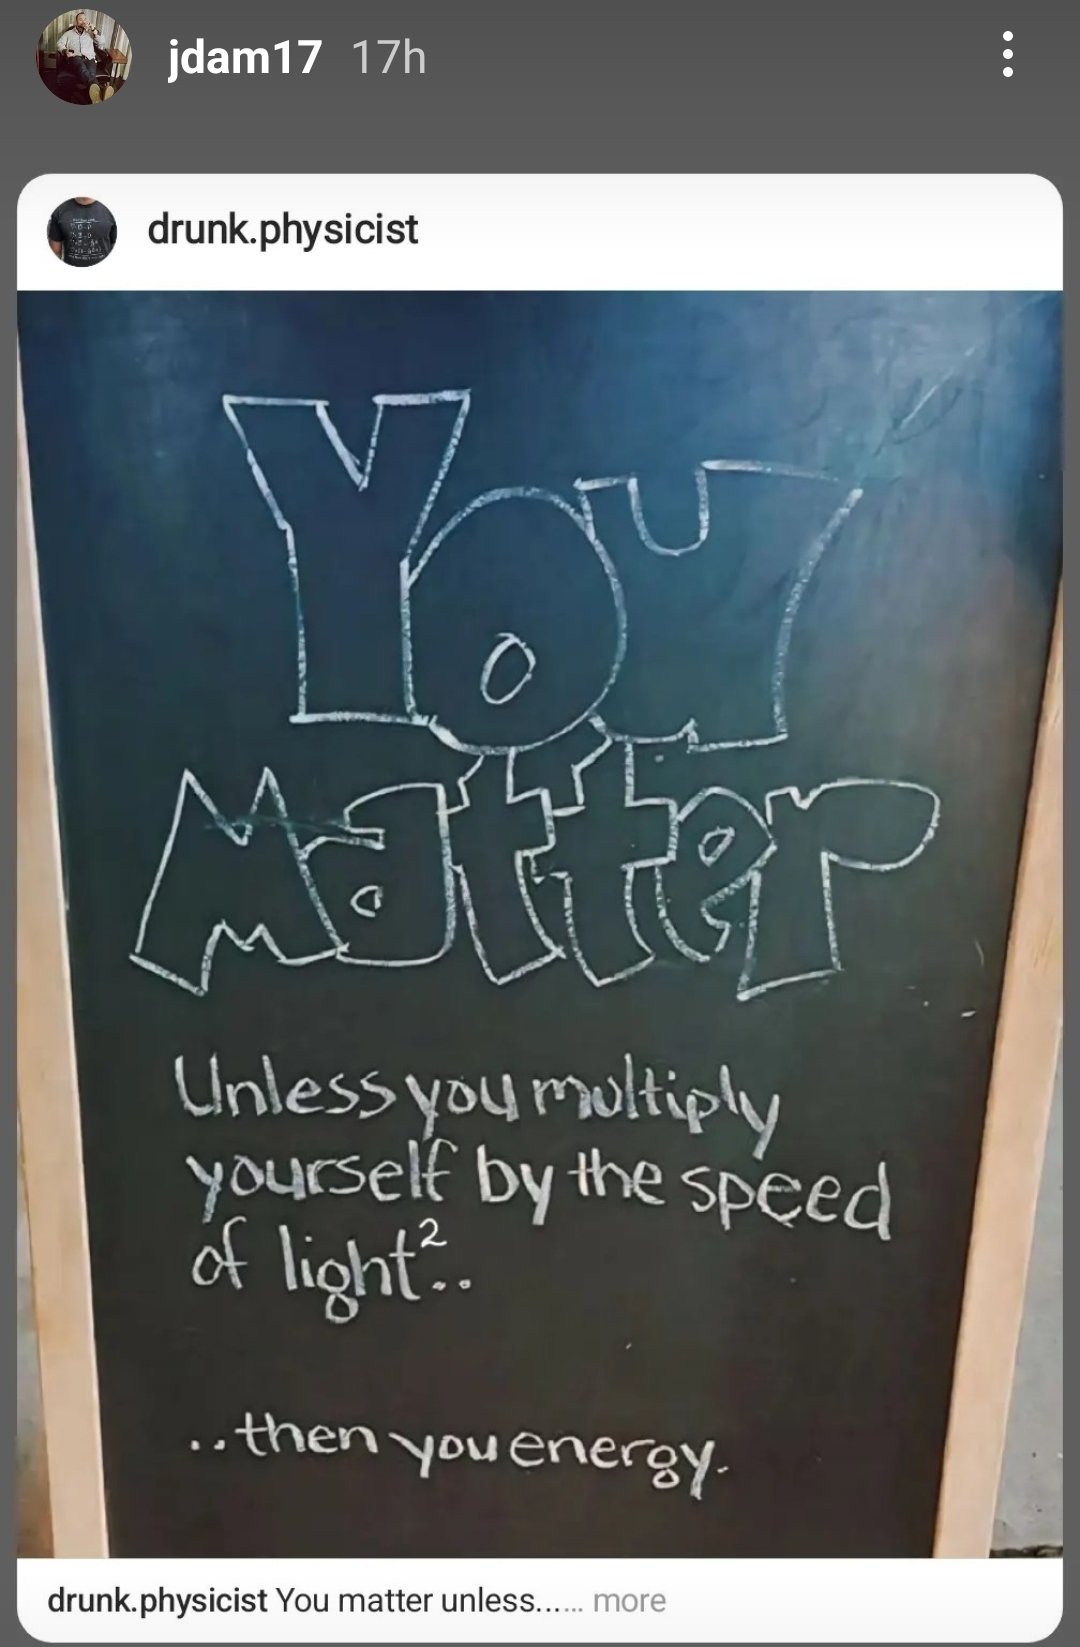 jdam17 17h
drunk.physicist
You
Matter
Unless you multiply
yourself by the speed
of light²..
..then you energy.
drunk.physicist You matter unless...... more